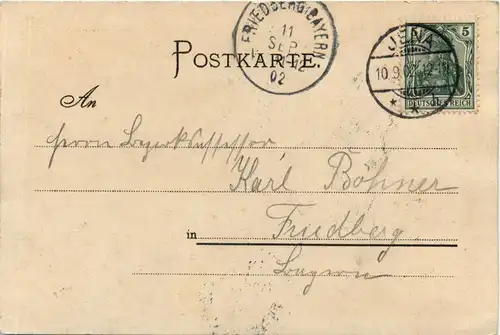 FRIEDBERG (BAYERN
11
SEP
02
POSTKARTE.
JENA
10.9.02
5
5
DEUTSCHES REICH
An
Herrn Bezirksassessor
Karl Bohner
in Friedberg
Bayern